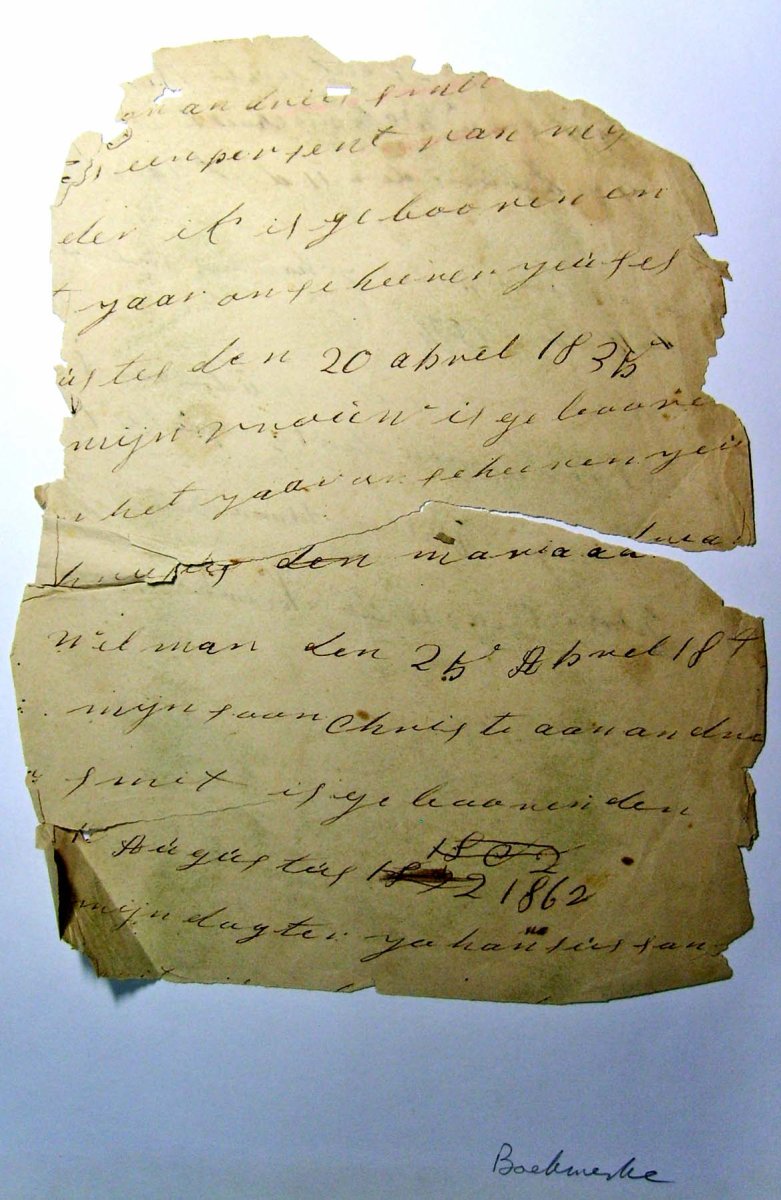 an andries smit
is een persent van my
der ik is gebooren en
t yaar onse heeren yeuses
us tes den 20 aprel 1835
mijn vrouw is geboore
n het yaar onse heeren yeu
den maria
wilman den 25 Aprel 184
mijn soon Christeaan andri
smit is gebooren den
Augustus 1862
mijn dogter yohan
Boekmerke